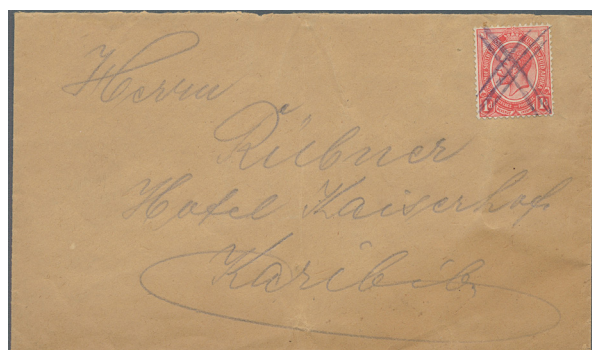 Herrn
Rübner
Hotel Kaiserhof
Karibib